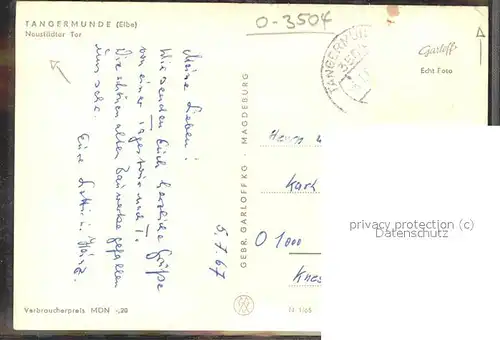 TANGERMÜNDE (Elbe)
Neustädter Tor
O-3504
TANGERMÜN
3504
Garloff
Echt Foto
Meine Lieben!
Wir senden Euch herzliche Grüße
von einer Tagestour nach T.
Die schönen alten Bauwerke gefallen
uns sehr.
Eure
5.7.67
GEBR. GARLOFF KG · MAGDEBURG
Karl
O 1000
privacy protection (c)
Datenschutz
Verbraucherpreis MDN -,20
N 1/65